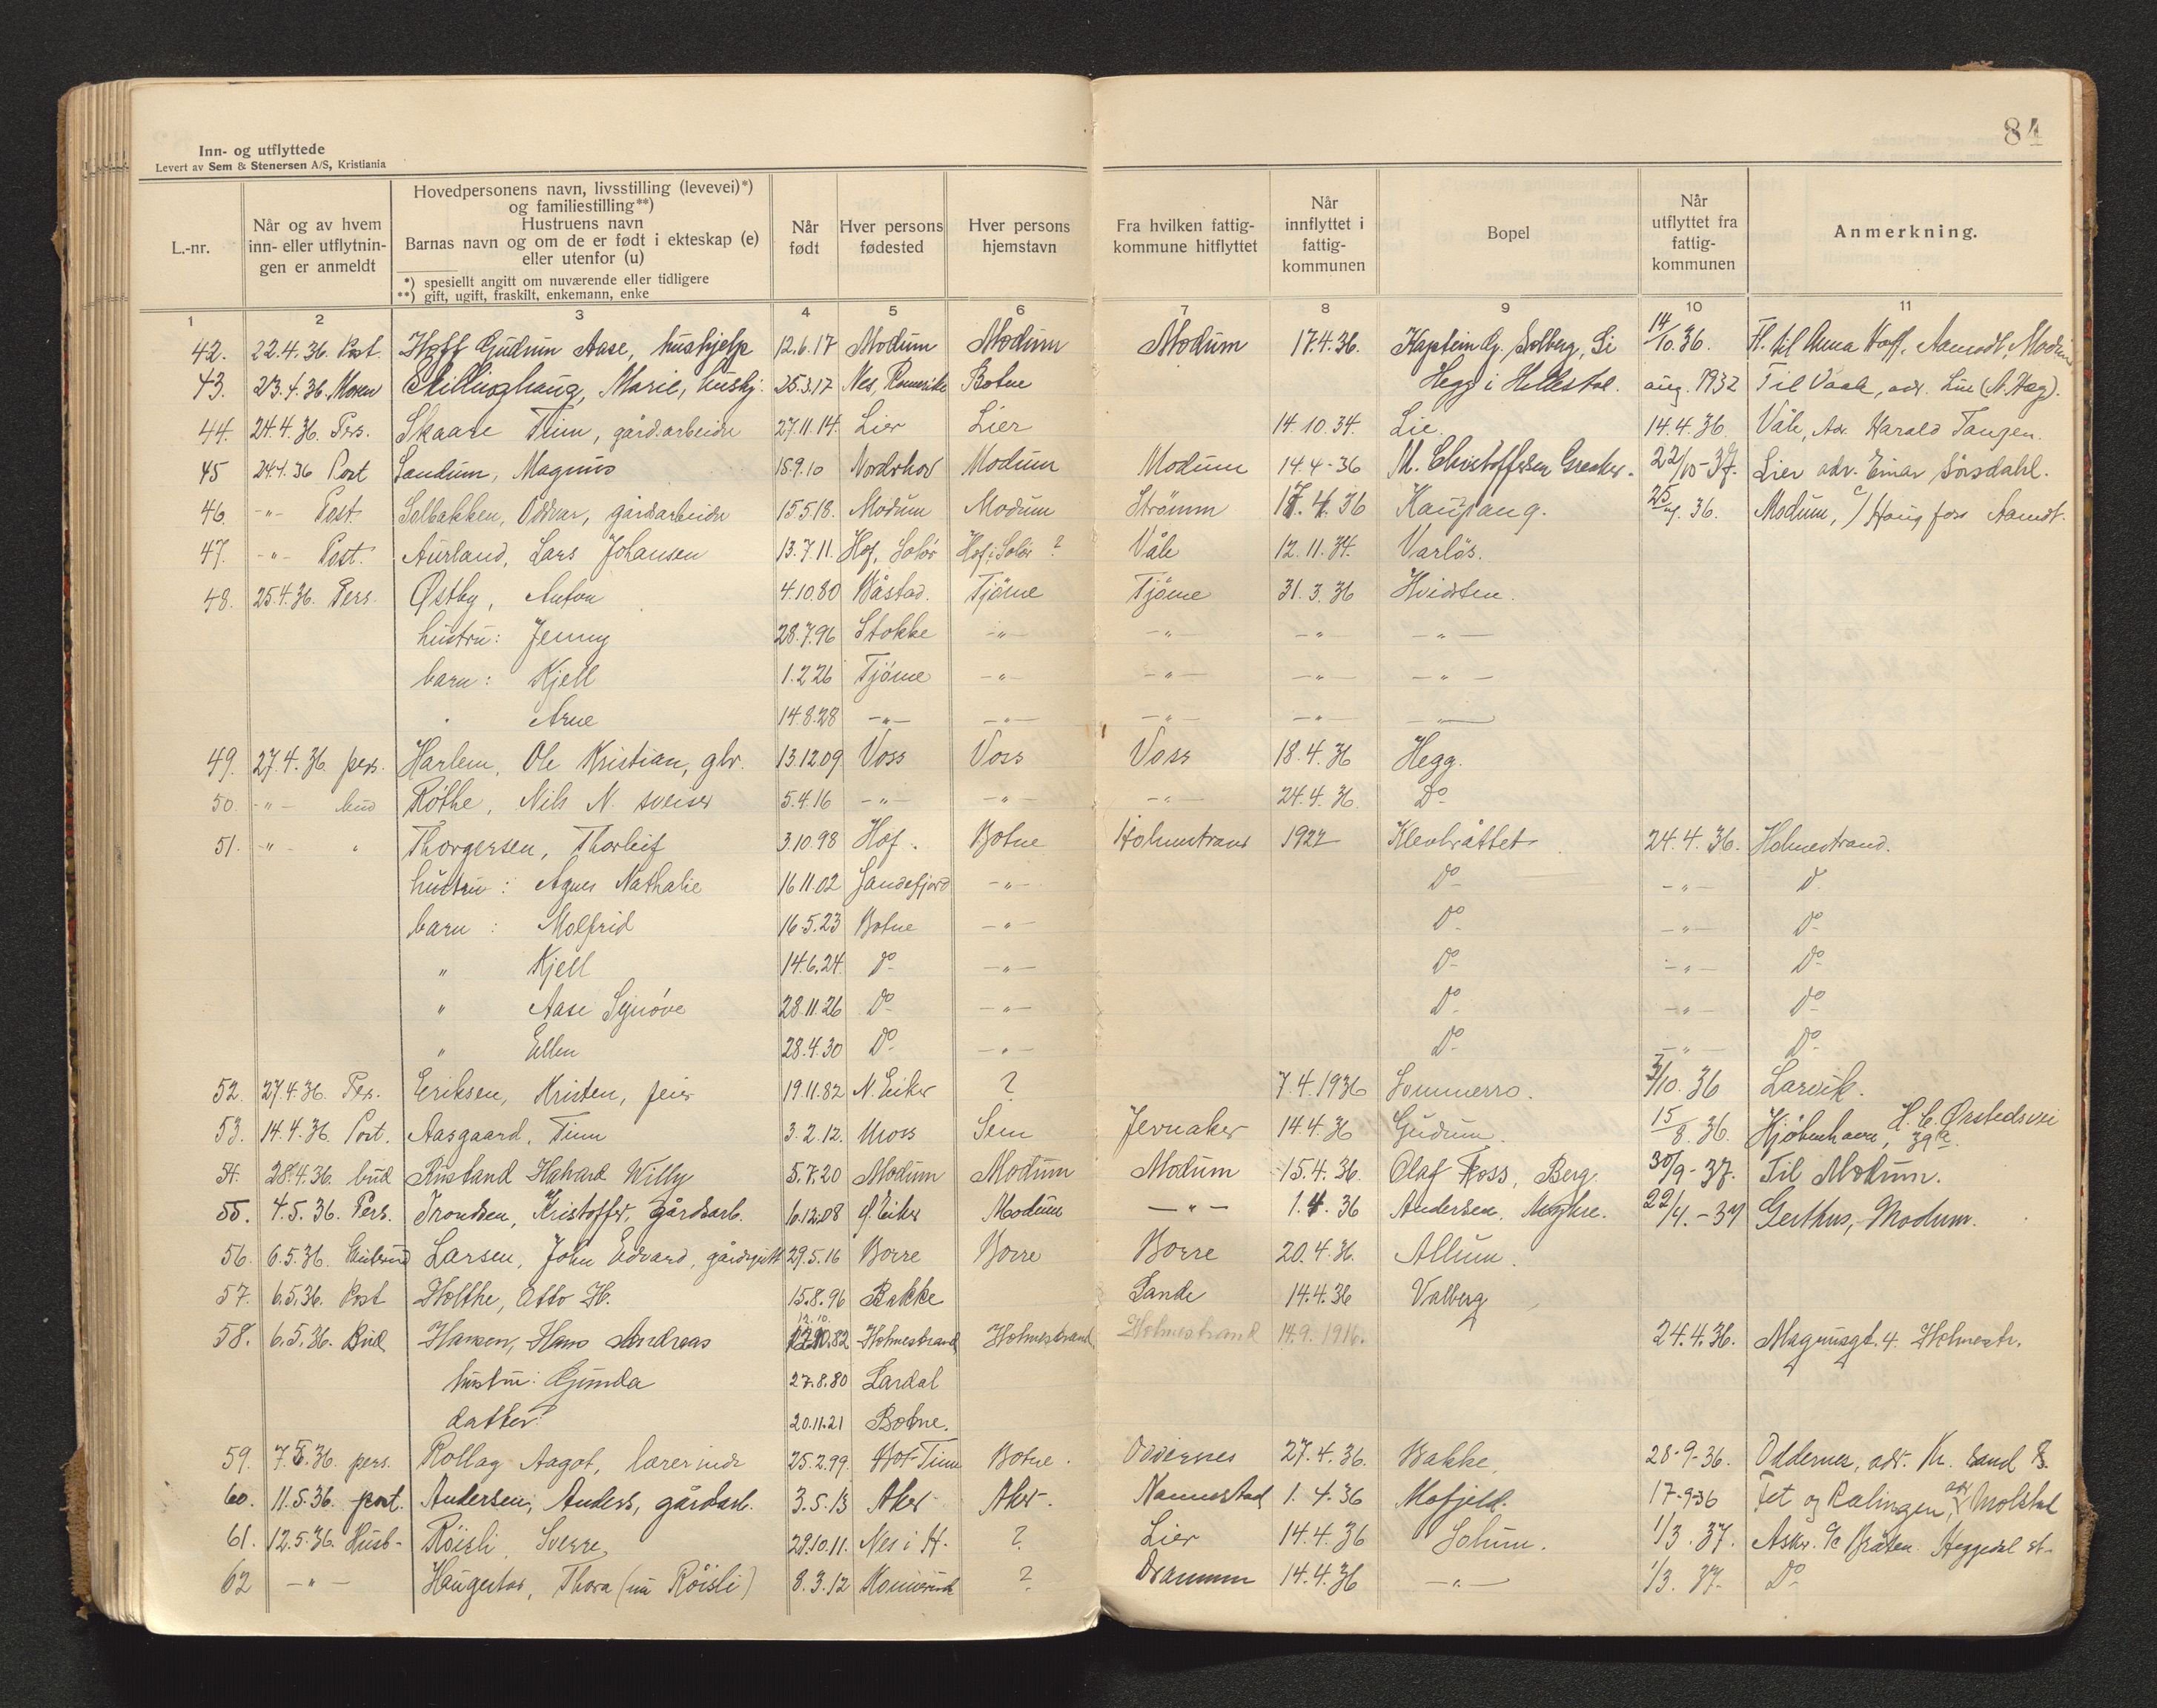 84
Inn- og utflyttede
Levert av Sem & Stenersen A/S, Kristiania
L.-nr. | Når og av hvem inn- eller utflytnin- gen er anmeldt | Hovedpersonens navn, livsstilling (levevei)*) og familiestilling**) Hustruens navn Barnas navn og om de er født i ekteskap (e) eller utenfor (u) *) spesiellt angitt om nuværende eller tidligere **) gift, ugift, fraskilt, enkemann, enke | Når født | Hver persons fødested | Hver persons hjemstavn | Fra hvilken fattig- kommune hitflyttet | Når innflyttet i fattig- kommunen | Bopel | Når utflyttet fra fattig- kommunen | Anmerkning.
1 2 3 4 5 6 7 8 9 10 11
42. 22.4.36. Post. Hoff Gudrun Aase, hushjelp 12.6.17 Modum Modum Modum 17.4.36. Kaptein Solberg, Li 14/10.36. Fl. til Anna Hoff, Aamodt, Modum
43. 23.4.36. Moren Skillinghaug, Marie, hushj. 25.3.17 Nes, Romerike Botne Hegg i Hillestad. aug. 1932 Til Vaale, adr. Lie (A. Hag).
44. 24.4.36. Pers. Skaare Trim, gårdsarbeider 27.11.14. Lier Lier 14.10.34. Lie. 14.4.36. Våle, Adr. Harald Tangen.
45 24.4.36 Post Sandum, Magnus 18.9.10 Nordrhov Modum Modum 14.4-36 M. Christoffersen Greaker. 22/10-37. Lier adr. Einar Sørsdahl.
46. -"- Post. Solbakken, Oddvar, gårdsarbeider 15.5.18. Modum Modum Strømm 17.4.36 Kaupang. 25/4.36. Modum, c/ Haugfoss Aamdt.
47. -"- Post. Aurland, Lars Johansen 13.7.11. Hof, Solør Hof i Solør ? Våle 12.11.34. Varløs.
48. 25.4.36. Pers. Østby, Anton 4.10.80 Våstad. Tjöme Tjöme 31.3.36 Hvidsten.
hustru: Jenny 28.7.96 Stokke -"- -"- -"- -"-
barn: Kjell 1.2.26 Tjöme -"- -"- -"- -"-
" Arne 14.8.28 -"- -"- -"- -"- -"-
49. 27.4.36. pers. Harlem, Ole Kristian, gbr. 13.12.09 Voss Voss Voss 18.4.36 Hegg.
50. -"- bud Röthe, Nils N. sveiser 5.4.16 -"- -"- -"- 24.4.36. Do
51. -"- " Thorgersen, Thorleif 3.10.98 Hof. Botne Holmestrand 1922 Klevbråttet 24.4.36. Holmestrand.
hustru: Agnes Nathalie 16.11.02 Sandefjord -"- Do -"- Do
barn: Molfrid 16.5.23 Botne -"- Do -"- Do
" Kjell 14.6.24. Do -"- Do -"- Do
" Aase Synöve 28.11.26 Do -"- Do -"- Do
" Ellen 28.4.30 Do -"- Do -"- Do
52. 27.4.36. Pers. Eriksen, Kristen, feier 19.11.82 N. Eiker ? 7.4.1936 Sommerro. 3/10.36 Larvik.
53. 14.4.36. Post. Aasgaard, Finn 3.2.12. Moss Sem Jevnaker 14.4.36 Gudum. 15/8.36. Kjöbenhavn, H. C. Ørstedsvei 39a.
54. 28.4.36. bud Rustand Halvard Willy 5.7.20 Modum Modum Modum 15.4.36. Olaf Foss, Berg. 30/9-37. Til Modum.
55. 4.5.36. Pers. Trondsen, Kristoffer, gårdsarb. 6.12.08 Ø. Eiker Modum -"- 1.4.36 Andersen, Myhre. 22/4.-37 Geithus, Modum.
56. 6.5.36. Larsen, John Edvard, gårdsgutt 29.5.16 Borre Borre Borre 20.4.36. Allum.
57. 6.5.36. Post Holthe, Otto H. 15.8.96 Bakke Sande 14.4.36 Valberg
58. 6.5.36. Bud Hansen, Hans Andreas 12.10.82 Holmestrand Holmestrand Holmestrand 14.9.1916. 24.4.36. Magnusgt. 4. Holmestr.
hustru: Gunda 27.8.80 Lardal
datter: 20.11.21 Botne.
59. 7.5.36. pers. Rollag Aagot, lærerinde 25.2.99. Botne. Oddernes 27.4.36. Bakke. 28-9-36. Oddernes, adr. Kr. sand S.
60. 11.5.36. post. Andersen, Anders, gårdsarb. 3.5.13 Aker Aker. Nannestad 1.4.36 Mofjeld. 17-9-36 Fet og Rælingen, adr. Molstad
61. 12.5.36. Husb- Röisli, Sverre 29.10.11. Nes i H. ? Lier 14.4.36 Solum. 1/3.37. Asker. c/o Bråten. Heggedal st-
62 -"- Haugestad, Thora (nu Röisli) 8.3.12 ? Drammen 14.4.36 -"- 1/3.37. Do